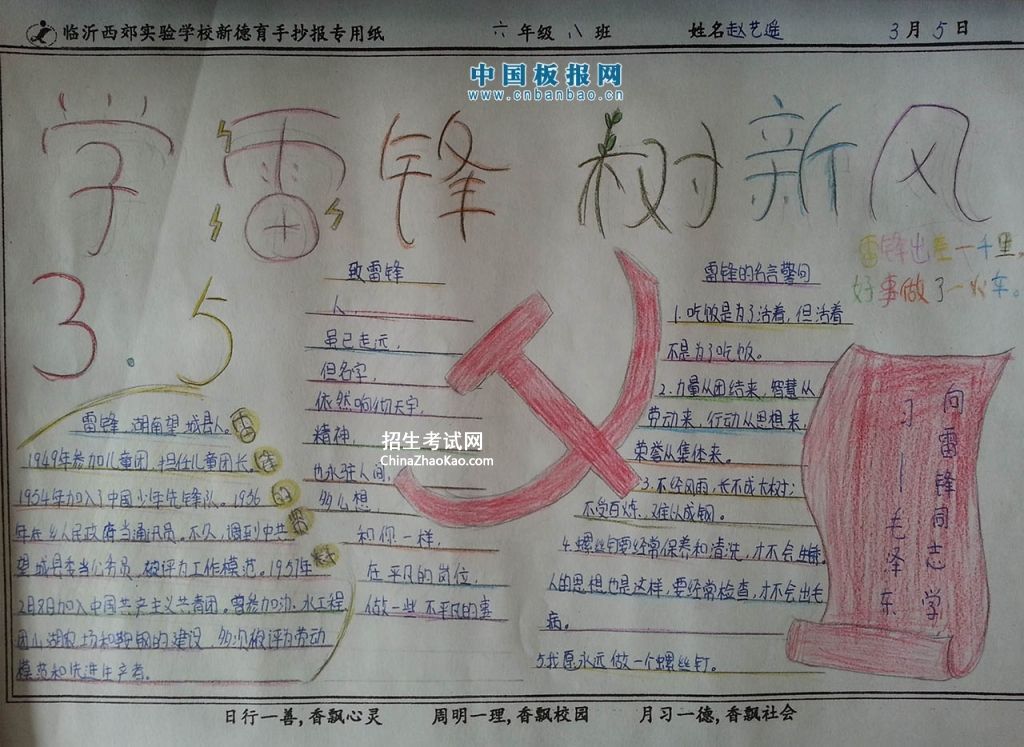 临沂西郊实验学校新德育手抄报专用纸 六年级 八 班 姓名赵艺遥 3月5日
中国板报网
www.cnbanbao.cn
学雷锋 树新风
雷锋出差一千里，
好事做了一火车。
3.5
雷锋，湖南望城县人。
1949年参加儿童团，担任儿童团长。
1954年加入中国少年先锋队。1956
年在乡人民政府当通讯员。不久，调到中共
望城县委当公务员，被评为工作模范。1957年
2月8日加入中国共产主义共青团。曾参加沩水工程、
团山湖农场和鞍钢的建设，多次被评为劳动
模范和先进生产者。
雷
锋
的
致雷锋
人，
虽已走远，
但名字，
依然响彻天宇，
精神，
也永驻人间，
多么想
和你一样，
在平凡的岗位，
做一些不平凡的事
招生考试网
ChinaZhaoKao.com
雷锋的名言警句
1.吃饭是为了活着，但活着
不是为了吃饭。
2.力量从团结来，智慧从
劳动来，行动从思想来，
荣誉从集体来。
3.不经风雨，长不成大树；
不受百炼，难以成钢。
4.螺丝钉要经常保养和清洗，才不会生锈。
人的思想也是这样，要经常检查，才不会出毛
病。
5.我愿永远做一个螺丝钉。
向雷锋同志学
习——毛泽东
日行一善，香飘心灵 周明一理，香飘校园 月习一德，香飘社会